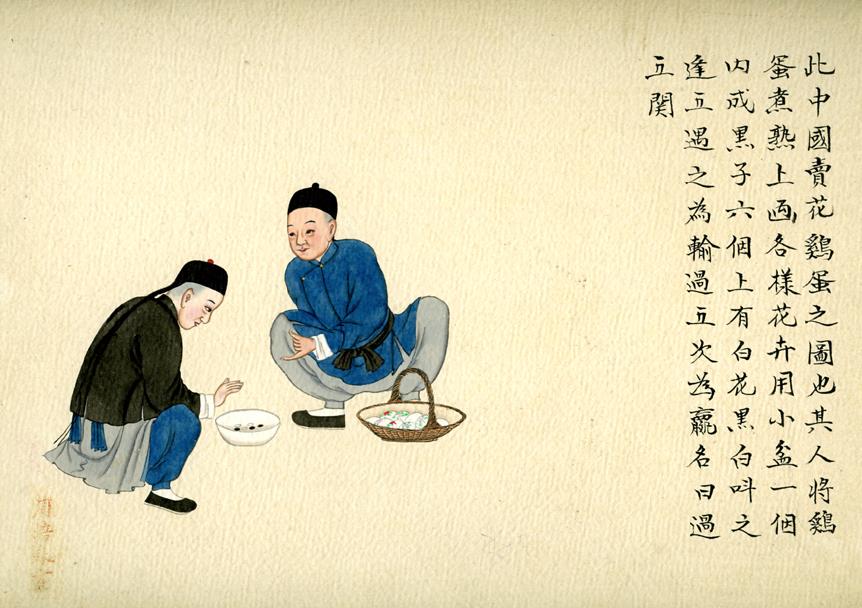 此中國賣花鷄蛋之圖也其人將鷄
蛋煮熟上畫各樣花卉用小盆一個
内成黒子六個上有白花黒白呌之
逢五遇之為輸過五次為贏名曰過
五関